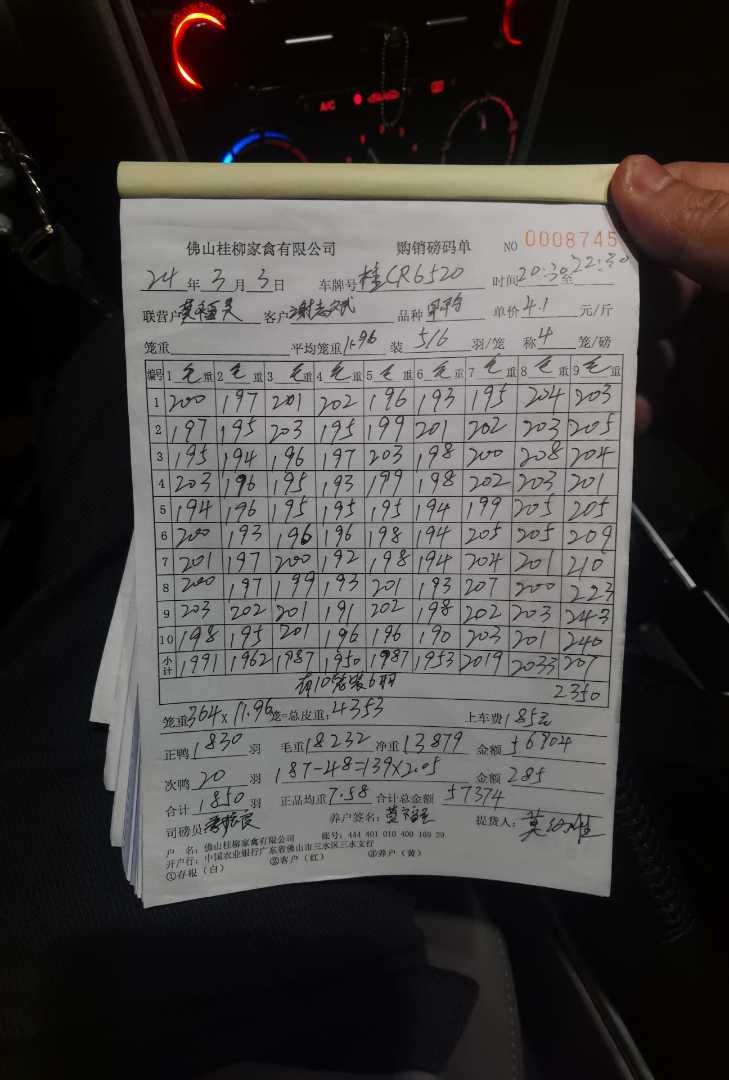 佛山桂柳家禽有限公司 购销磅码单 NO 0008745
24年3月3日 车牌号 桂CR6520 时间20:30至22:30
联营户 客户 谢志斌 品种 单价4.1元/斤
笼重 平均笼重11.96 装5/6羽/笼 称4笼/磅
编号 1毛重 2毛重 3毛重 4毛重 5毛重 6毛重 7毛重 8毛重 9毛重
1 200 197 201 202 196 193 195 204 203
2 197 195 203 195 199 201 202 203 205
3 195 194 196 197 203 198 200 208 204
4 203 196 195 193 199 198 202 203 201
5 194 196 195 195 195 194 199 205 205
6 200 193 196 196 198 194 205 205 209
7 201 197 200 192 198 194 204 201 210
8 200 197 199 193 201 193 207 200 223
9 203 202 201 191 202 198 202 203 243
10 198 195 201 196 196 190 203 201 240
小计 1991 1962 1987 1950 1987 1953 2019 2033 207
有10笼装6羽 2350
笼重364×11.96笼=总皮重:4353 上车费185元
正鸭1830羽 毛重18232 净重13879 金额56904
次鸭20羽 187-48=139×2.05 金额285
合计1850羽 正品均重7.58 合计总金额57374
司磅员 养户签名: 提货人:
户 名: 佛山桂柳家禽有限公司 账号: 444 401 010 400 169 29
开户行: 中国农业银行广东省佛山市三水区三水支行
①存根(白) ②客户(红) ③养户(黄)
A/C